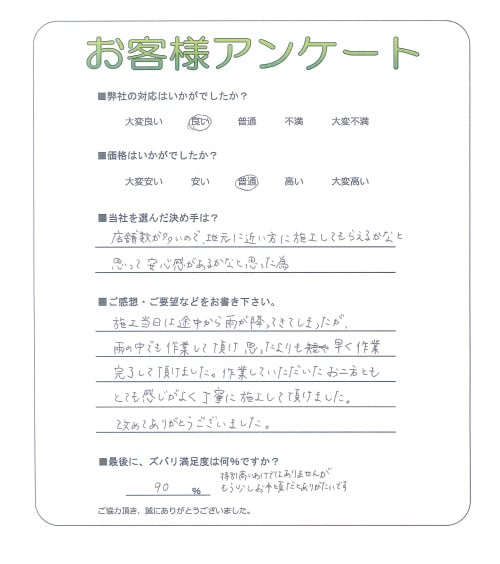 お客様アンケート
■弊社の対応はいかがでしたか？
大変良い 良い 普通 不満 大変不満
■価格はいかがでしたか？
大変安い 安い 普通 高い 大変高い
■当社を選んだ決め手は？
店舗数が多いので、地元に近い方に施工してもらえるかなと
思って安心感があるかなと思った為
■ご感想・ご要望などをお書き下さい。
施工当日は途中から雨が降ってきてしまったが、
雨の中でも作業して頂け思ったよりも早く作業
完了して頂けました。作業していただいたお二方とも
とても感じがよく丁寧に施工して頂けました。
改めてありがとうございました。
■最後に、ズバリ満足度は何％ですか？
特別高いわけではありませんが
90 % もう少しお手頃だとありがたいです
ご協力頂き、誠にありがとうございました。